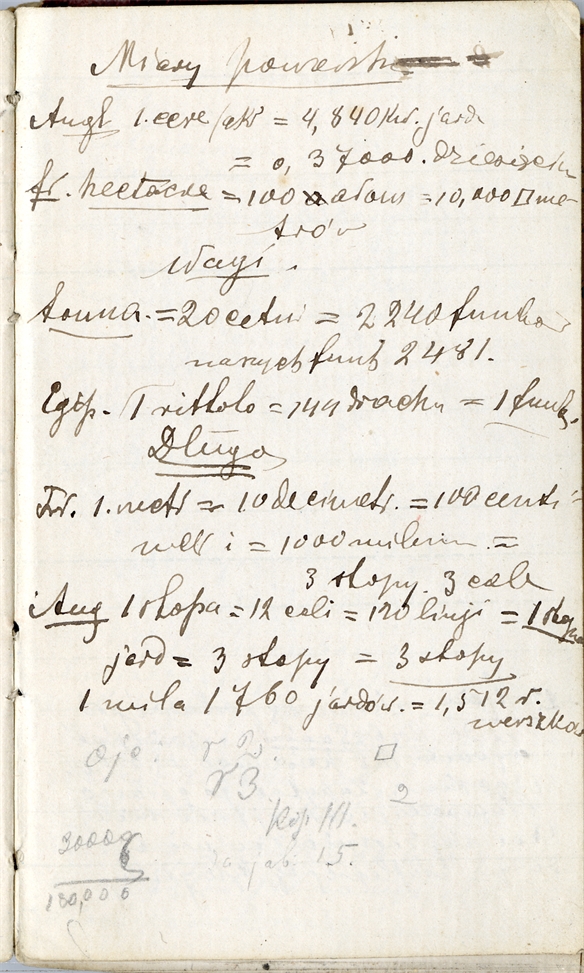 Miary
Angl 1. acre / akr = 4,840 kw. jard
= 0,37000. dziesięcin
fr. hectare = 100 arom = 10,000 □ me-
trów
Wagi.
tonna. = 20 cetn = 2240 funtów
naszych funt 2481.
Egip. 1 rittolo = 144 drachm = 1 funt,
Długo
Fr. 1. metr = 10 decimetr. = 100 centi=
metr i = 1000 milim =
3 stopy 3 cale
Ang 1 stopa = 12 cali = 120 linji = 1 stopa
jard = 3 stopy = 3 stopy
1 mila 1760 jardów. = 1,512 r.
□
r 3
2
III.
15.